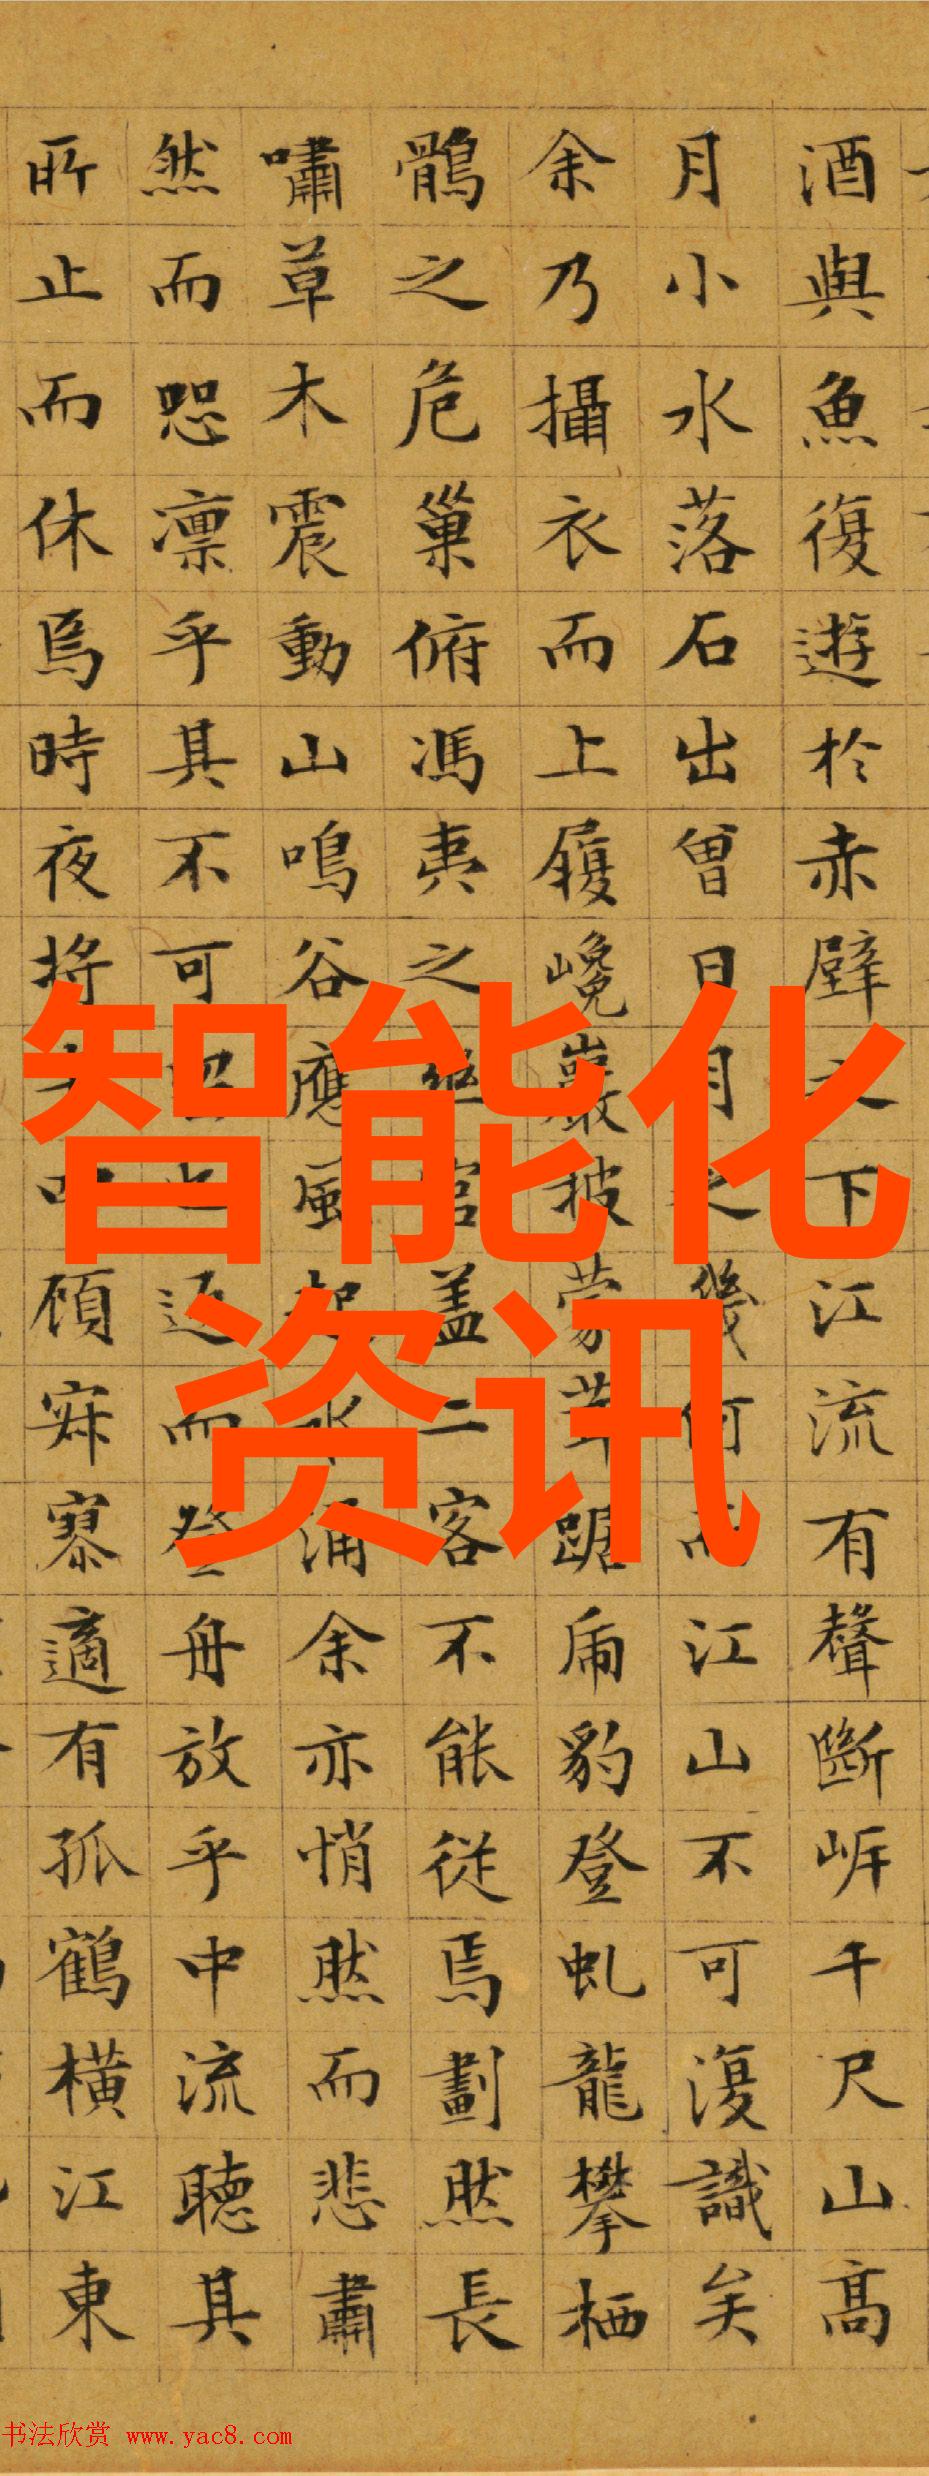 酒與魚復遊於赤壁之下江流有聲斷岸千尺山高
月小水落石出曾日月之幾何而江山不可復識矣
余乃攝衣而上履巉巖披蒙茸踞虎豹登虬龍攀栖
鶻之危巢俯馮夷之宮盖二客不能從焉劃然長
嘯草木震動山鳴谷應風起水涌余亦悄然而悲肅
然而恐凛乎其不可留也返而登舟放乎中流聽其
所止而休焉時夜將半四顧寂寥適有孤鶴橫江東
智能化
资讯
书法欣赏 www.yac8.com